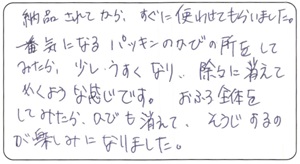 納品されてから、すぐに使わせてもらいました。
一番気になるパッキンのひびの所をして
みたら、少しうすくなり、除々に消えて
いくような感じです。おふろ全体を
してみたら、ひびも消えて、そうじするの
が楽しみになりました。